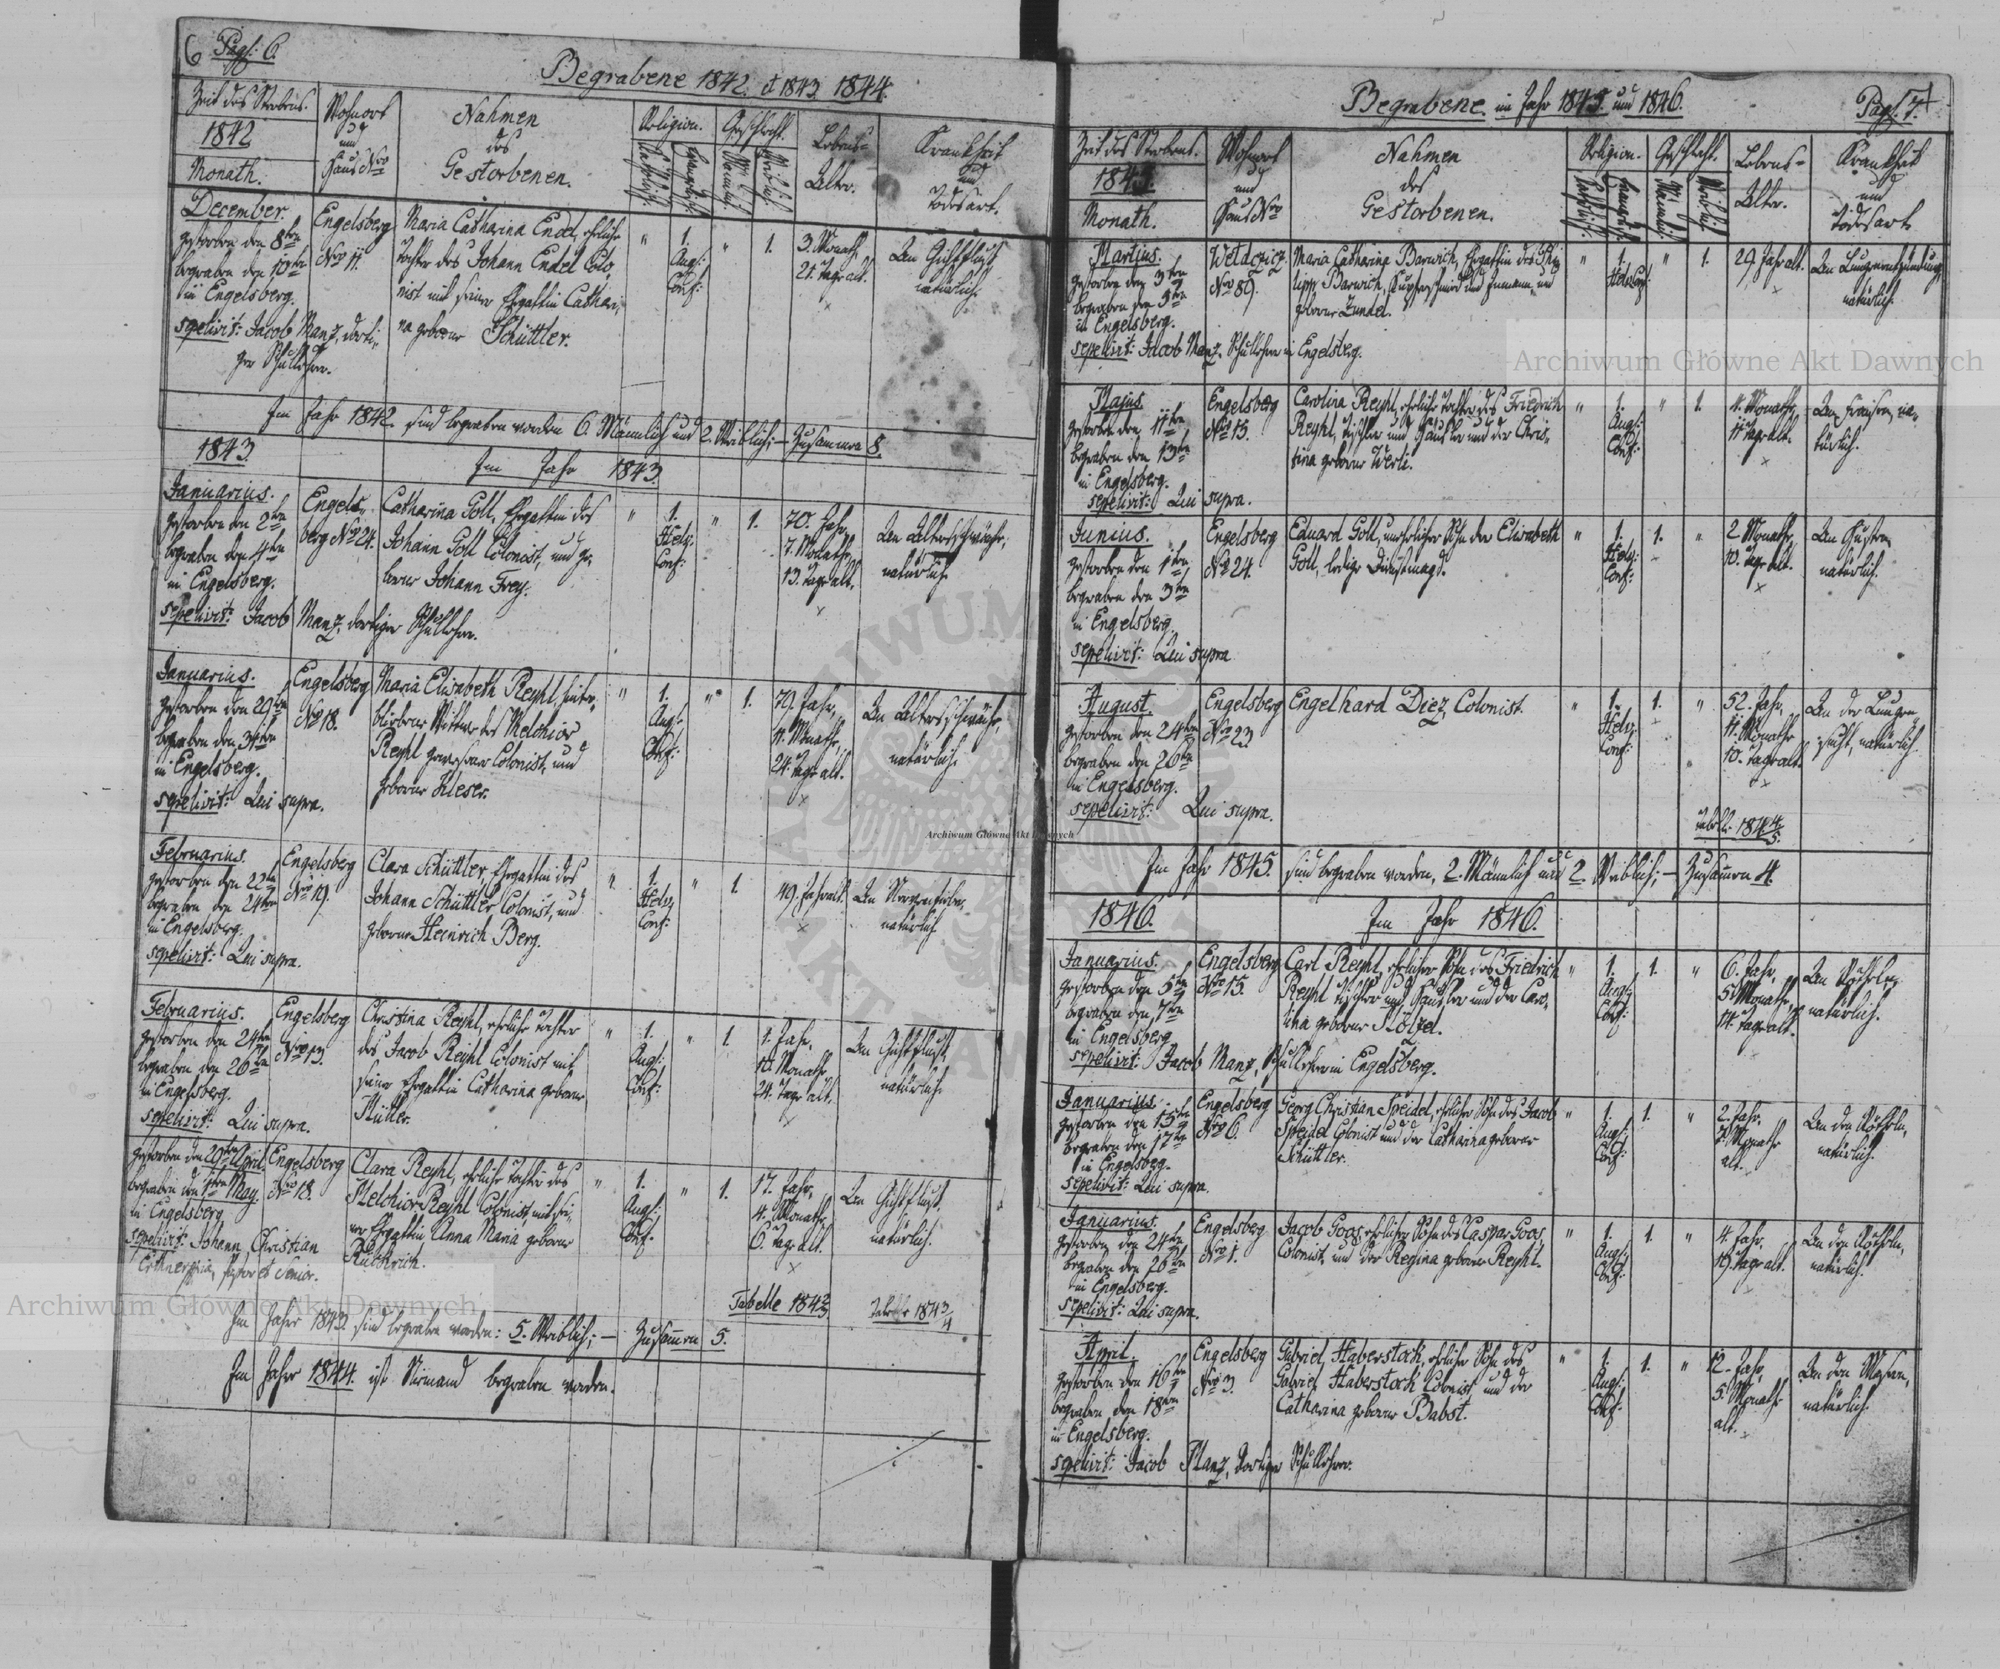 6 Pag: 6.
Begrabene 1842. & 1843. 1844.
Zeit des Sterbens.
1842
Monath.
Wohnort
und
Haus Nro
Nahmen
des
Gestorbenen.
Religion.
Katholisch.
Evangelisch.
Geschlecht.
Männl.
Weibl.
Lebens-
Alter.
Krankheit
und
Todesart.
December.
gestorben den 8ten
begraben den 10ten
in Engelsberg.
sepelivit: Jacob Manz, dorti-
ger Schullehrer.
Engelsberg
Nro 11.
Maria Catharina Endel, eheliche
Tochter des Johann Endel Colo-
nist mit seiner Ehegattin Cathari-
na geborne Schüttler.
" 1. " 1.
Augs:
Conf:
3. Monath,
21. Tage alt.
Am Gichtfluß
natürlich.
Im Jahr 1842. sind begraben worden 6. Männlich und 2. Weiblich; — Zusammen 8.
1843 Im Jahr 1843.
Januarius.
gestorben den 2ten
begraben den 4ten
in Engelsberg.
sepelivit: Jacob Manz, dortiger Schullehrer.
Engels-
berg Nro 24.
Catharina Goll, Ehegattin des
Johann Goll Colonist, und ge-
borne Johann Frey.
" 1. " 1.
Helv:
Conf:
70. Jahr,
7. Monath,
13. Tage alt.
Am Altersschwäche,
natürlich.
Januarius.
gestorben den 29ten
begraben den 31ten
in Engelsberg.
sepelivit: Qui supra.
Engelsberg
Nro 18.
Maria Elisabeth Reyhl, hinter-
bliebene Wittwe des Melchior
Reyhl gewesener Colonist, und
geborne Kleser.
" 1. " 1.
Augs:
Conf:
79. Jahr,
11. Monath,
24. Tage alt.
Am Altersschwäche,
natürlich.
Februarius.
gestorben den 22ten
begraben den 24ten
in Engelsberg.
sepelivit: Qui supra.
Engelsberg
Nro 19.
Clara Schüttler, Ehegattin des
Johann Schüttler Colonist, und
geborne Heinrich Berg.
" 1. " 1.
Helv:
Conf:
49. Jahr alt.
Am Nervenfieber,
natürlich.
Februarius.
gestorben den 24ten
begraben den 26ten
in Engelsberg.
sepelivit: Qui supra.
Engelsberg
Nro 13.
Christina Reyhl, eheliche Tochter
des Jacob Reihl Colonist mit
seiner Ehegattin Catharina geborne
Müller.
" 1. " 1.
Augs:
Conf:
1. Jahr,
10. Monath,
24. Tage alt.
Am Gichtfluß,
natürlich.
gestorben den 29ten April
begraben den 1ten May.
in Engelsberg
sepelivit: Johann Christian
Pastor et Senior.
Engelsberg
Nro 18.
Clara Reyhl, eheliche Tochter des
Melchior Reyhl Colonist, mit sei-
ner Ehegattin Anna Maria geborne
Rübherich.
" 1. " 1.
Augs:
Conf:
17. Jahr,
4. Monath,
6. Tage alt.
Am Gichtfluß.
natürlich.
Tabelle 1842/3 Tabelle 1843/4
Im Jahre 1843. sind begraben worden: 5. Weiblich; — Zusammen 5.
Im Jahre 1844. ist Niemand begraben worden.
Begrabene im Jahr 1845. und 1846.
Pag: 7.
Zeit des Sterbens.
1845.
Monath.
Wohnort
und
Haus Nro
Nahmen
des
Gestorbenen.
Religion.
Katholisch.
Evangelisch.
Geschlecht.
Männl.
Weibl.
Lebens-
Alter.
Krankheit
und
Todesart
Martius.
gestorben den 3ten
begraben den 5ten
in Engelsberg.
sepelivit: Jacob Manz, Schullehrer in Engelsberg.
Weldczicz
Nro 89.
Maria Catharina Barwich, Ehegattin des Phi-
lipp Barwich, Kupferschmied und Inmann, und
geborne Zundel.
" 1. " 1.
Helv. Conf:
29. Jahr alt.
Am Lungenentzündung,
natürlich.
Majus.
gestorben den 11ten
begraben den 13ten
in Engelsberg.
sepelivit: Qui supra.
Engelsberg
Nro 15.
Carolina Reyhl, eheliche Tochter des Friedrich
Reyhl, Tischler und Häusler und der Chris-
tina geborne Werli.
" 1. " 1.
Augs:
Conf:
4. Monath,
11 Tage alt.
Am Fraisen, na-
türlich.
Junius.
gestorben den 1ten
begraben den 3ten
in Engelsberg
sepelivit: Qui supra
Engelsberg
Nro 24.
Eduard Goll, unehelicher Sohn der Elisabeth
Goll, ledige Dienstmagd.
" 1. 1. "
Helv:
Conf:
2 Monath,
10. Tage alt.
Am Husten
natürlich.
August.
gestorben den 24ten
begraben den 26ten
in Engelsberg.
sepelivit: Qui supra.
Engelsberg
Nro 23.
Engelhard Diez, Colonist.
" 1. 1. "
Helv:
Conf:
52. Jahr,
11. Monath
10. Tage alt.
An der Lungen
sucht, natürlich.
Tabelle 1844/5.
Im Jahr 1845. sind begraben worden, 2. Männlich und 2. Weiblich; — Zusammen 4.
1846. Im Jahr 1846.
Januarius.
gestorben den 5ten
begraben den 7ten
in Engelsberg
sepelivit: Jacob Manz, Schullehrer in Engelsberg.
Engelsberg
Nro 15.
Carl Reyhl, ehelicher Sohn des Friedrich
Reyhl Tischler und Häusler und der Caro-
lina geborne Plözel.
" 1. 1. "
Augs:
Conf:
6. Jahr,
5 Monath,
14. Tage alt.
Am Rötheln,
natürlich.
Januarius.
gestorben den 15ten
begraben den 17ten
in Engelsberg.
sepelivit: Qui supra.
Engelsberg
Nro 6.
Georg Christian Speidel, ehelicher Sohn des Jacob
Speidel Colonist und der Catharina geborne
Schüttler.
" 1. 1. "
Augs:
Conf:
2. Jahr,
2 Monath
alt.
An den Rötheln,
natürlich.
Januarius.
gestorben den 24ten
begraben den 26ten
in Engelsberg.
sepelivit: Qui supra.
Engelsberg
Nro 1.
Jacob Goos, ehelicher Sohn des Caspar Goos,
Colonist, und der Regina geborne Reyhl.
" 1. 1. "
Augs:
Conf:
4. Jahr,
19. Tage alt.
An den Rötheln,
natürlich.
April.
gestorben den 16ten
begraben den 18ten
in Engelsberg.
sepelivit: Jacob Manz, dortiger Schullehrer.
Engelsberg
Nro 3.
Gabriel Haberstock, ehelicher Sohn des
Gabriel Haberstock Colonist, und der
Catharina geborne Babst.
" 1. 1. "
Augs:
Conf:
12. Jahr,
5. Monath
alt.
An den Masern,
natürlich.
Archiwum Główne Akt Dawnych
Archiwum Główne Akt Dawnych
Archiwum Główne Akt Dawnych